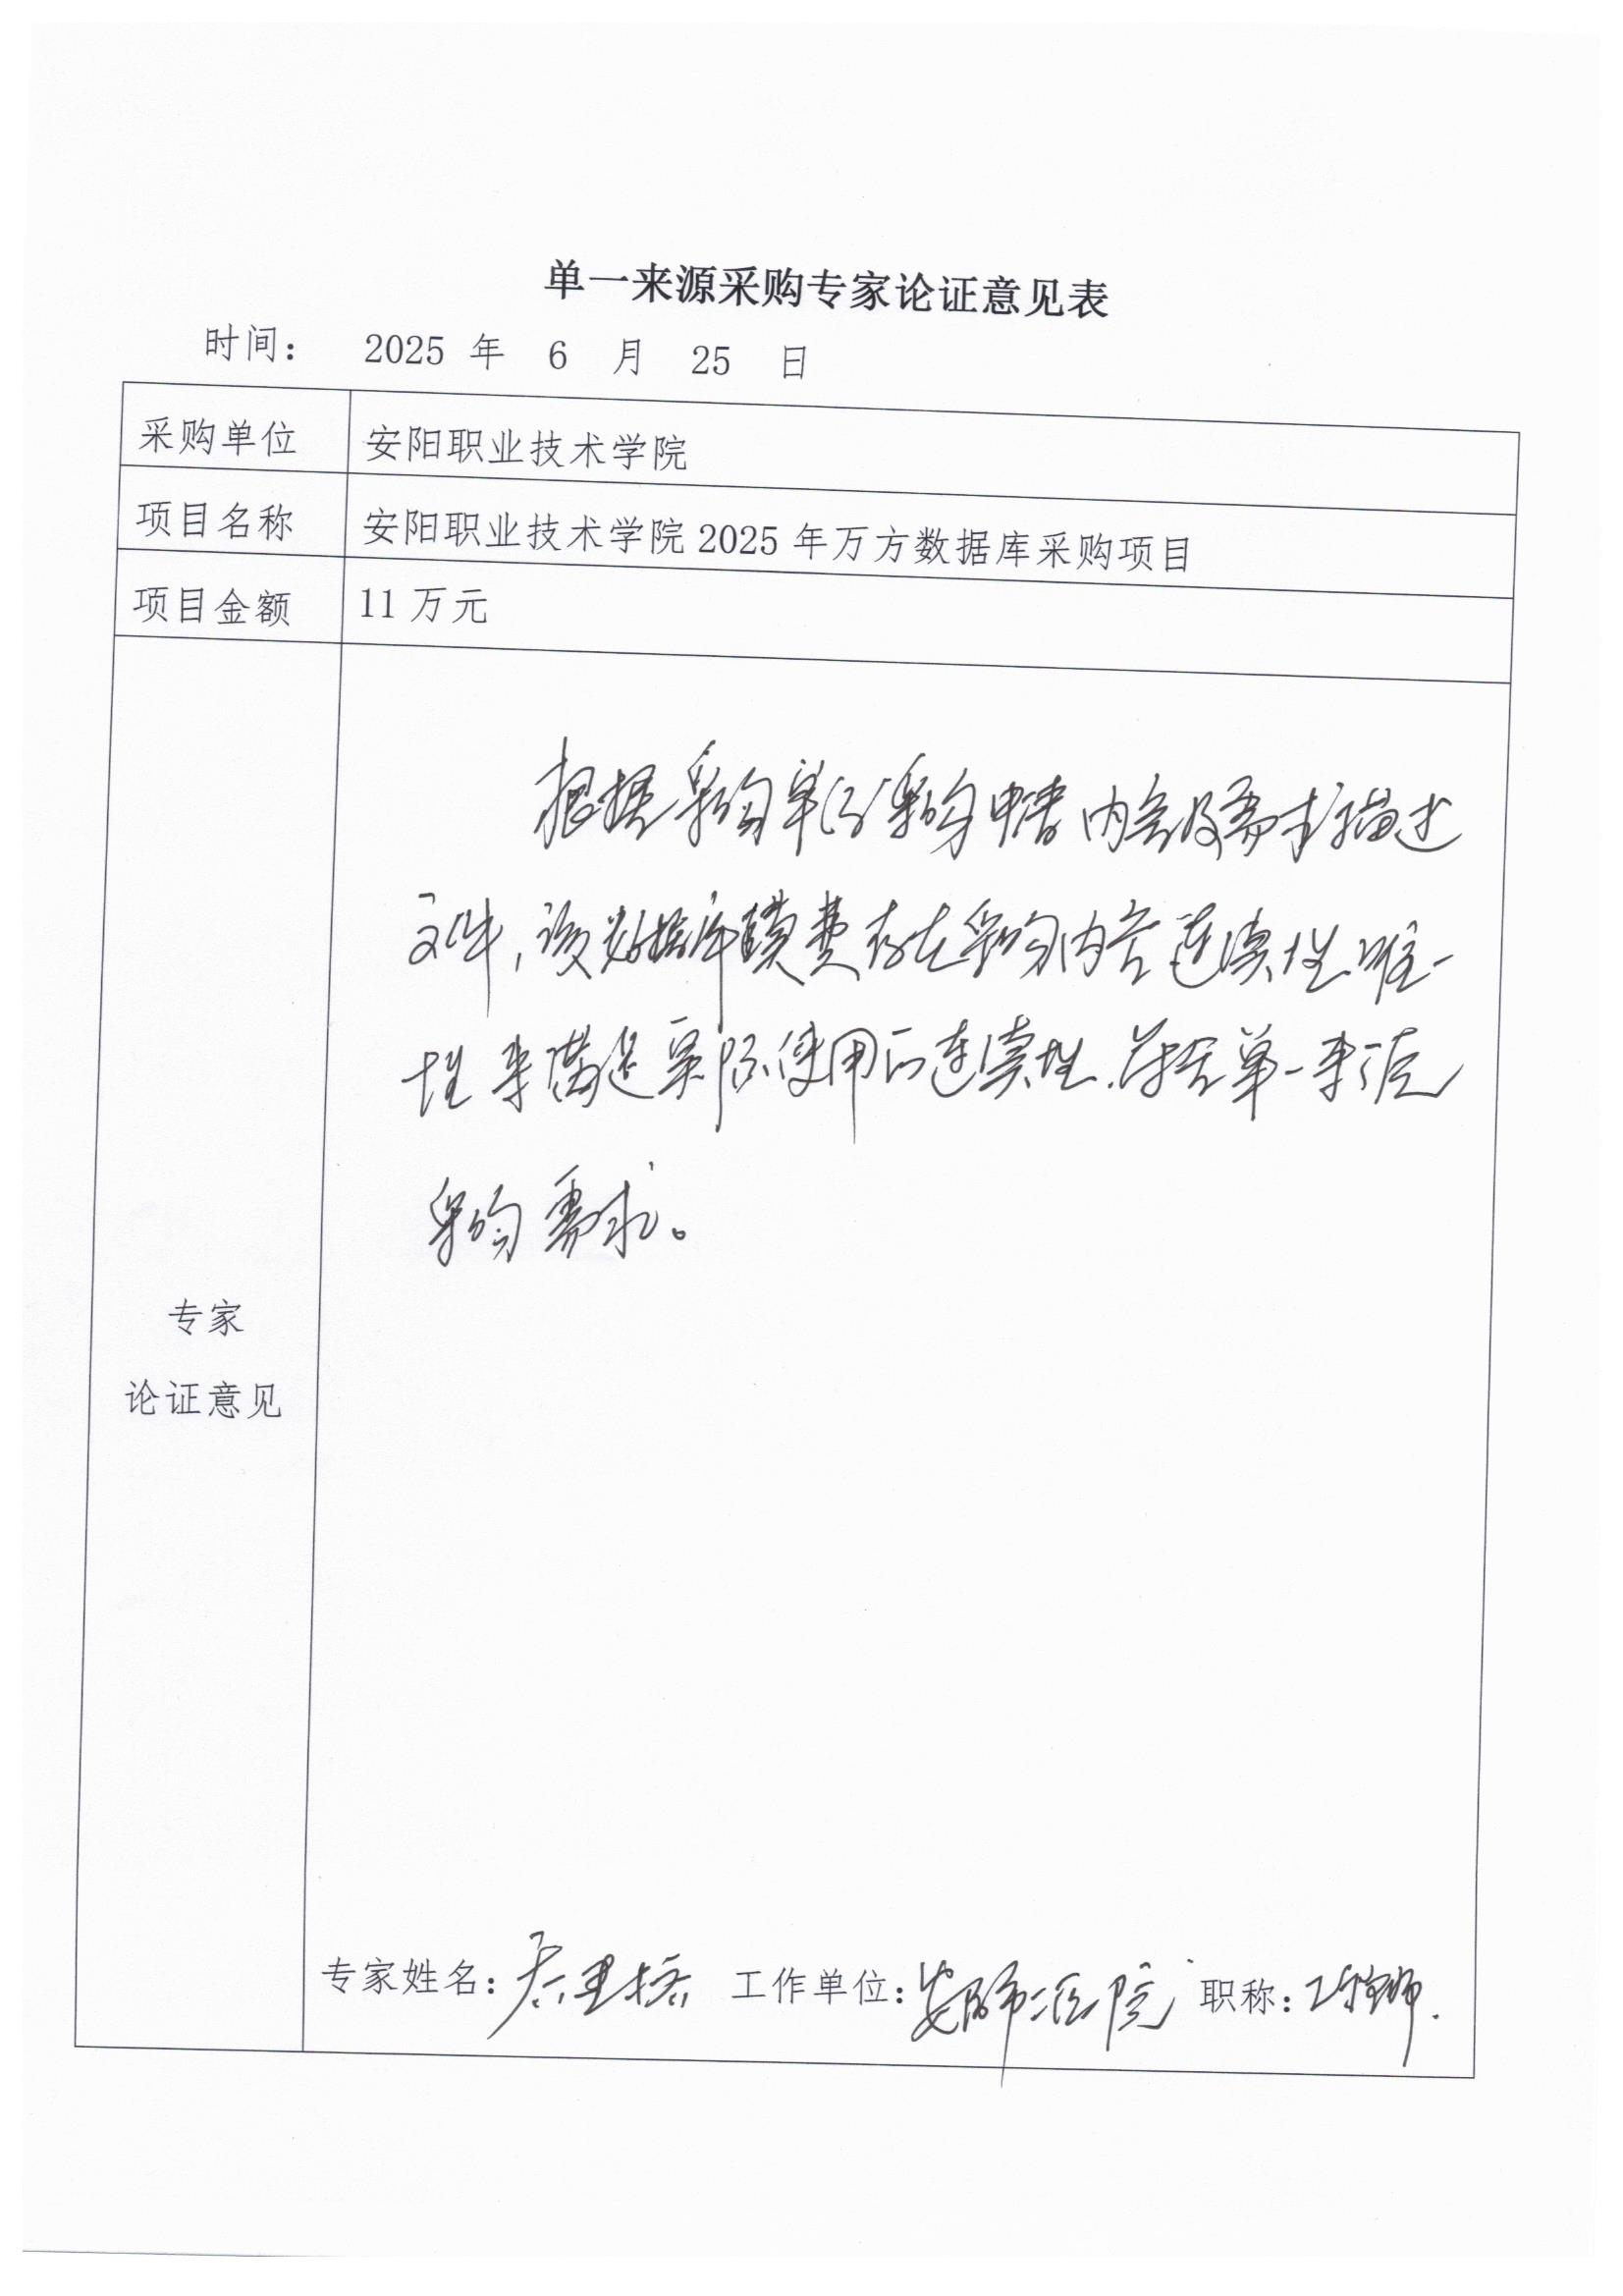 单一来源采购专家论证意见表
时间： 2025 年 6 月 25 日
采购单位 安阳职业技术学院
项目名称 安阳职业技术学院 2025 年万方数据库采购项目
项目金额 11 万元
根据采购单位采购申请内容及需求描述
文件，该数据库续费存在采购内容连续性、唯一
性来满足实际使用的连续性，符合单一来源
采购需求。
专家
论证意见
专家姓名： 工作单位：安阳市 医院 职称：工程师.